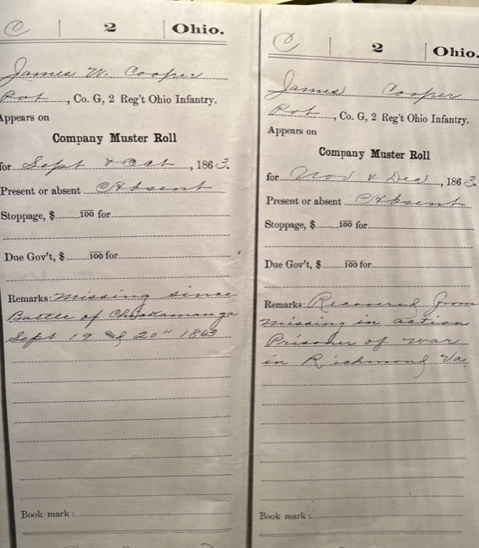 C | 2 | Ohio.
James W. Cooper
Pvt, Co. G, 2 Reg't Ohio Infantry.
Appears on
Company Muster Roll
for Sept & Oct, 1863.
Present or absent Absent
Stoppage, $ 100 for
Due Gov't, $ 100 for
Remarks: Missing since
Battle of Chickamauga
Sept 19 & 20" 1863
Book mark:
C | 2 | Ohio.
James Cooper
Pvt, Co. G, 2 Reg't Ohio Infantry.
Appears on
Company Muster Roll
for Nov & Dec, 1863.
Present or absent Absent
Stoppage, $ 100 for
Due Gov't, $ 100 for
Remarks: Recovered from
missing in action
Prisoner of war
in Richmond Va
Book mark: